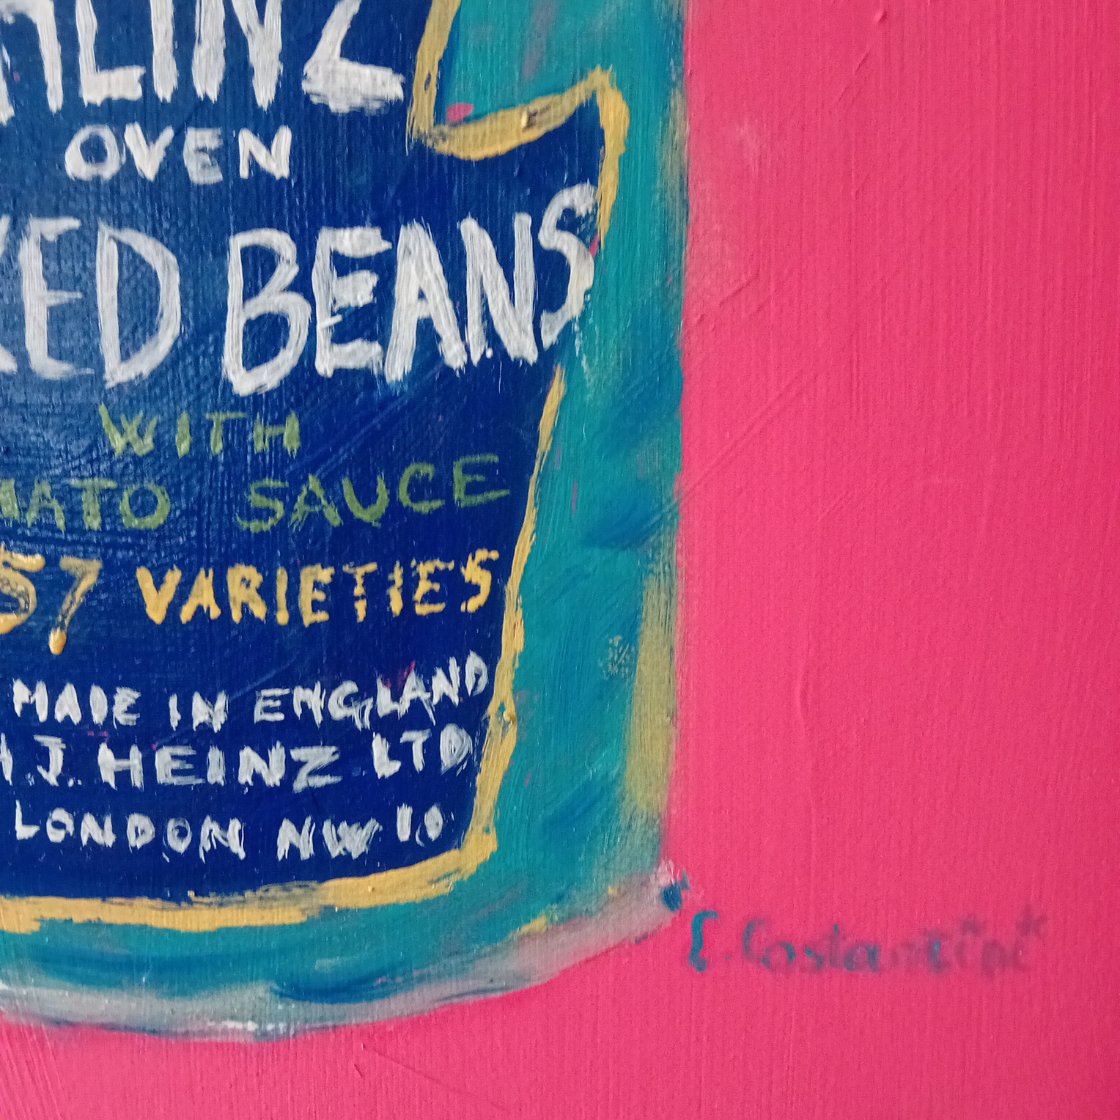 HEINZ
OVEN
KED BEANS
WITH
MATO SAUCE
57 VARIETIES
MADE IN ENGLAND
H.J. HEINZ LTD
LONDON NW 10
E. Costantini